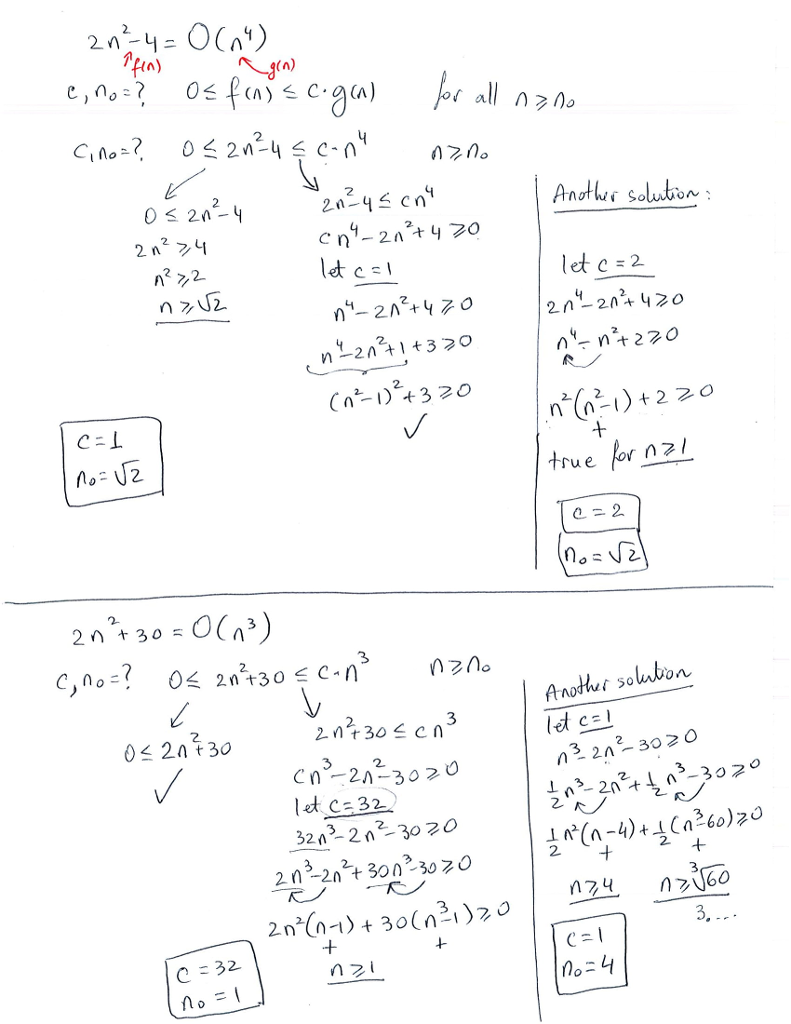 2n²-4 = O(n⁴)
↑f(n) ↖g(n)
c, n₀=? 0 ≤ f(n) ≤ c·g(n) for all n ≥ n₀
c, n₀=? 0 ≤ 2n²-4 ≤ c·n⁴ n ≥ n₀
0 ≤ 2n²-4
2n² ≥ 4
n² ≥ 2
n ≥ √2
2n²-4 ≤ cn⁴
cn⁴-2n²+4 ≥ 0
let c=1
n⁴-2n²+4 ≥ 0
n⁴-2n²+1+3 ≥ 0
(n²-1)²+3 ≥ 0
✓
c=1
n₀=√2
Another solution:
let c=2
2n⁴-2n²+4 ≥ 0
n⁴-n²+2 ≥ 0
n²(n²-1)+2 ≥ 0
+
true for n ≥ 1
c=2
n₀=√2
2n²+30 = O(n³)
c, n₀=? 0 ≤ 2n²+30 ≤ c·n³ n ≥ n₀
0 ≤ 2n²+30
✓
2n²+30 ≤ cn³
cn³-2n²-30 ≥ 0
let c=32
32n³-2n²-30 ≥ 0
2n³-2n²+30n³-30 ≥ 0
2n²(n-1)+30(n³-1) ≥ 0
+ +
n ≥ 1
c=32
n₀=1
Another solution
let c=1
n³-2n²-30 ≥ 0
½n³-2n²+½n³-30 ≥ 0
½n²(n-4)+½(n³-60) ≥ 0
+ +
n ≥ 4 n ≥ ³√60
3,....
c=1
n₀=4